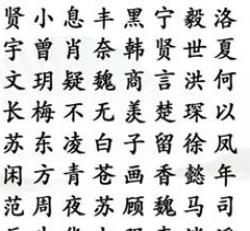 贤小息丰黑宁毅洛
宇曾肖奈韩贤世夏
文玥疑魏商言洪何
长梅不无羡楚琛以
苏东凌白子留徐凤
闲方青苍画香懿年
范周夜苏顾魏马司